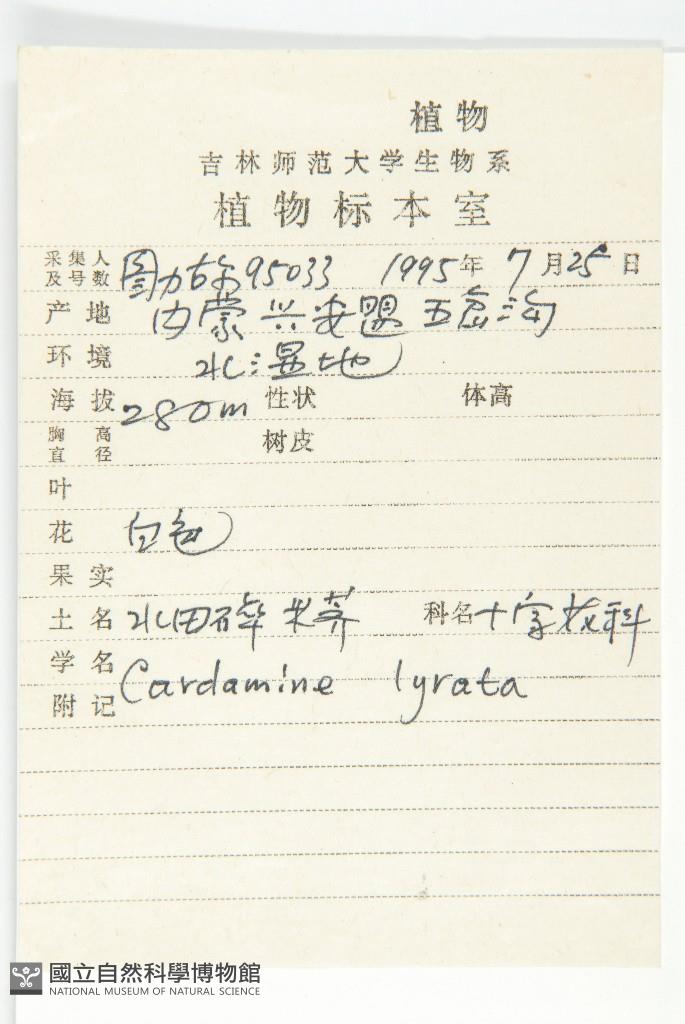 植物
吉林师范大学生物系
植物标本室
采集人及号数 图力古尔 95033 1995年7月25日
产地 内蒙兴安盟五岔沟
环境 水湿地
海拔 280m 性状 体高
胸高直径 树皮
叶
花 白色
果实
土名 水田碎米荠 科名 十字花科
学名 Cardamine lyrata
附记
國立自然科學博物館
NATIONAL MUSEUM OF NATURAL SCIENCE